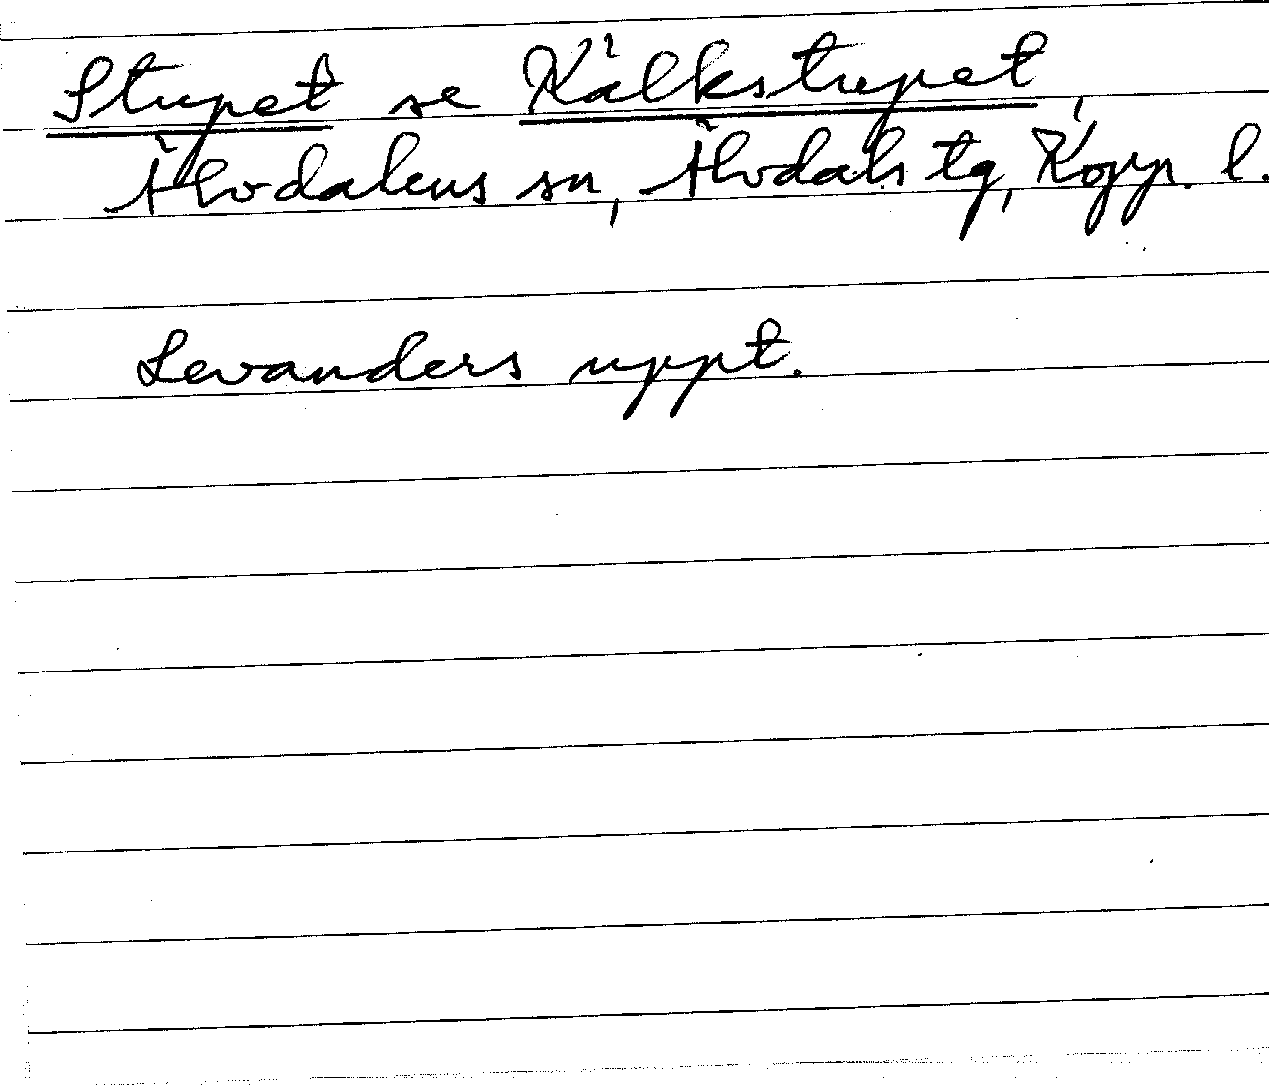 Stupet se Kälkstupet,
Älvdalens sn, Älvdals tg, Kopp. l.
Levanders uppt.